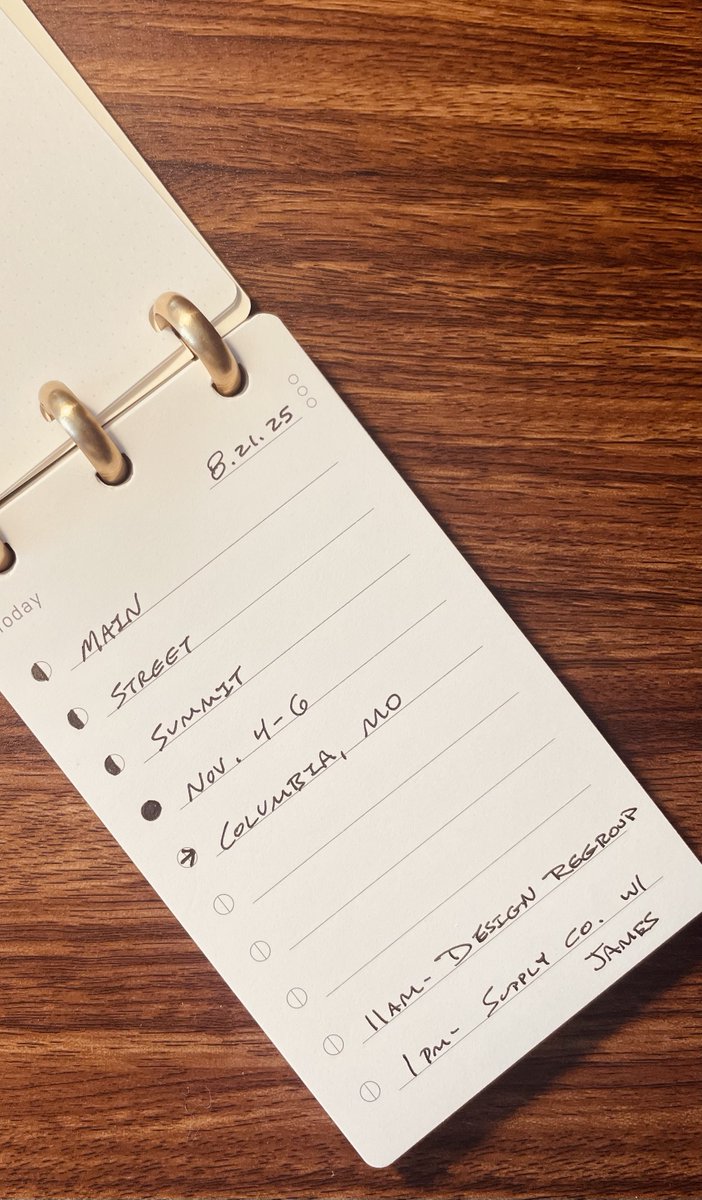 8.21.25
Today
MAIN
STREET
SUMMIT
NOV. 4-6
COLUMBIA, MO
11AM- DESIGN REGROUP
1PM- SUPPLY CO. W/
JAMES